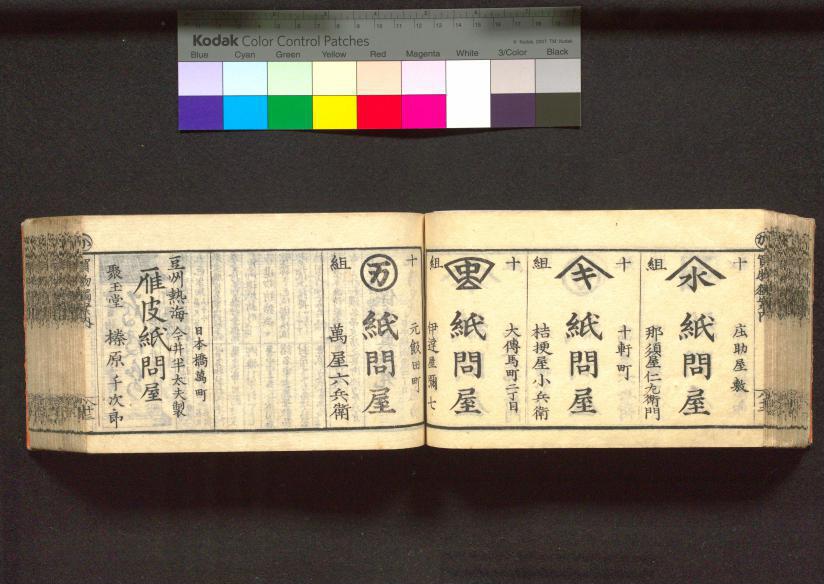 Kodak Color Control Patches
Blue Cyan Green Yellow Red Magenta White 3/Color Black
十組
水
紙問屋
庄助屋敷
那須屋仁左衛門
十組
キ
紙問屋
十軒町
桔梗屋小兵衛
十組
紙問屋
大傳馬町二丁目
伊達屋彌七
十組
万
紙問屋
元飯田町
萬屋六兵衛
日本橋萬町
豆州熱海 今井半太夫製
雁皮紙問屋
聚玉堂 榛原千次郎